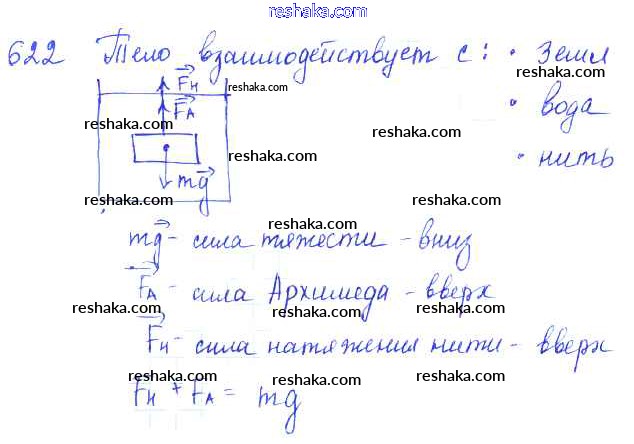 reshaka.com
622 Тело взаимодействует с: • Земл
reshaka.com reshaka.com reshaka.com
Fн
reshaka.com
FА
• вода
reshaka.com reshaka.com
reshaka.com
• нить
mg
reshaka.com reshaka.com
reshaka.com
mg - сила тяжести - вниз
reshaka.com reshaka.com
FА - сила Архимеда - вверх
reshaka.com reshaka.com
Fн - сила натяжения нити - вверх
reshaka.com reshaka.com
Fн + FА = mg
reshaka.com